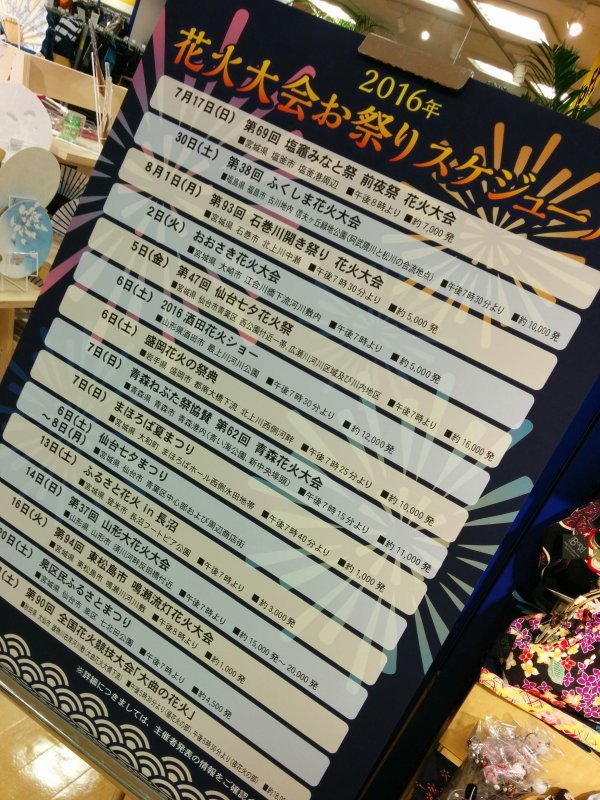 2016年
花火大会お祭りスケジュール
7月17日(日) 第69回 塩竈みなと祭 前夜祭 花火大会
■宮城県 塩釜市 塩釜港周辺 ■午後8時より ■約7,000発
30日(土) 第38回 ふくしま花火大会
■福島県 福島市 古川地内 信夫ヶ丘緑地公園(阿武隈川と松川の合流地点) ■午後7時30分より ■約10,000発
8月1日(月) 第93回 石巻川開き祭り 花火大会
■宮城県 石巻市 北上川中瀬 ■午後7時30分より ■約5,000発
2日(火) おおさき花火大会
■宮城県 大崎市 江合川橋下流河川敷内 ■午後7時より ■約5,000発
5日(金) 第47回 仙台七夕花火祭
■宮城県 仙台市青葉区 西公園付近一帯、広瀬川河川区域及び川内地区 ■午後7時より ■約16,000発
6日(土) 2016 酒田花火ショー
■山形県酒田市 最上川河川公園 ■午後7時30分より ■約12,000発
6日(土) 盛岡花火の祭典
■岩手県 盛岡市 都南大橋下流 北上川西側河畔 ■午後7時25分より ■約10,000発
7日(日) 青森ねぶた祭協賛 第62回 青森花火大会
■青森県 青森市 青森港内(青い海公園、新中央埠頭) ■午後7時15分より ■約11,000発
7日(日) まほろば夏まつり
■宮城県 大和町 まほろばホール西側水田地帯 ■午後7時40分より ■約1,000発
6日(土)〜8日(月) 仙台七夕まつり
■宮城県 仙台市 青葉区中心部および周辺商店街
13日(土) ふるさと花火 in 長沼
■宮城県 登米市 長沼フートピア公園 ■午後7時より ■約3,000発
14日(日) 第37回 山形大花火大会
■山形県 山形市 須川河畔反田橋付近 ■午後7時より ■約15,000発〜20,000発
16日(火) 第94回 東松島市 鳴瀬流灯花火大会
■宮城県 東松島市 鳴瀬川河川敷 ■午後8時より ■約1,000発
20日(土) 泉区民ふるさとまつり
■宮城県 仙台市 泉区 七北田公園 ■午後7時より ■約4,500発
(土) 第90回 全国花火競技大会「大曲の花火」
※詳細につきましては、主催者発表の情報をご確認